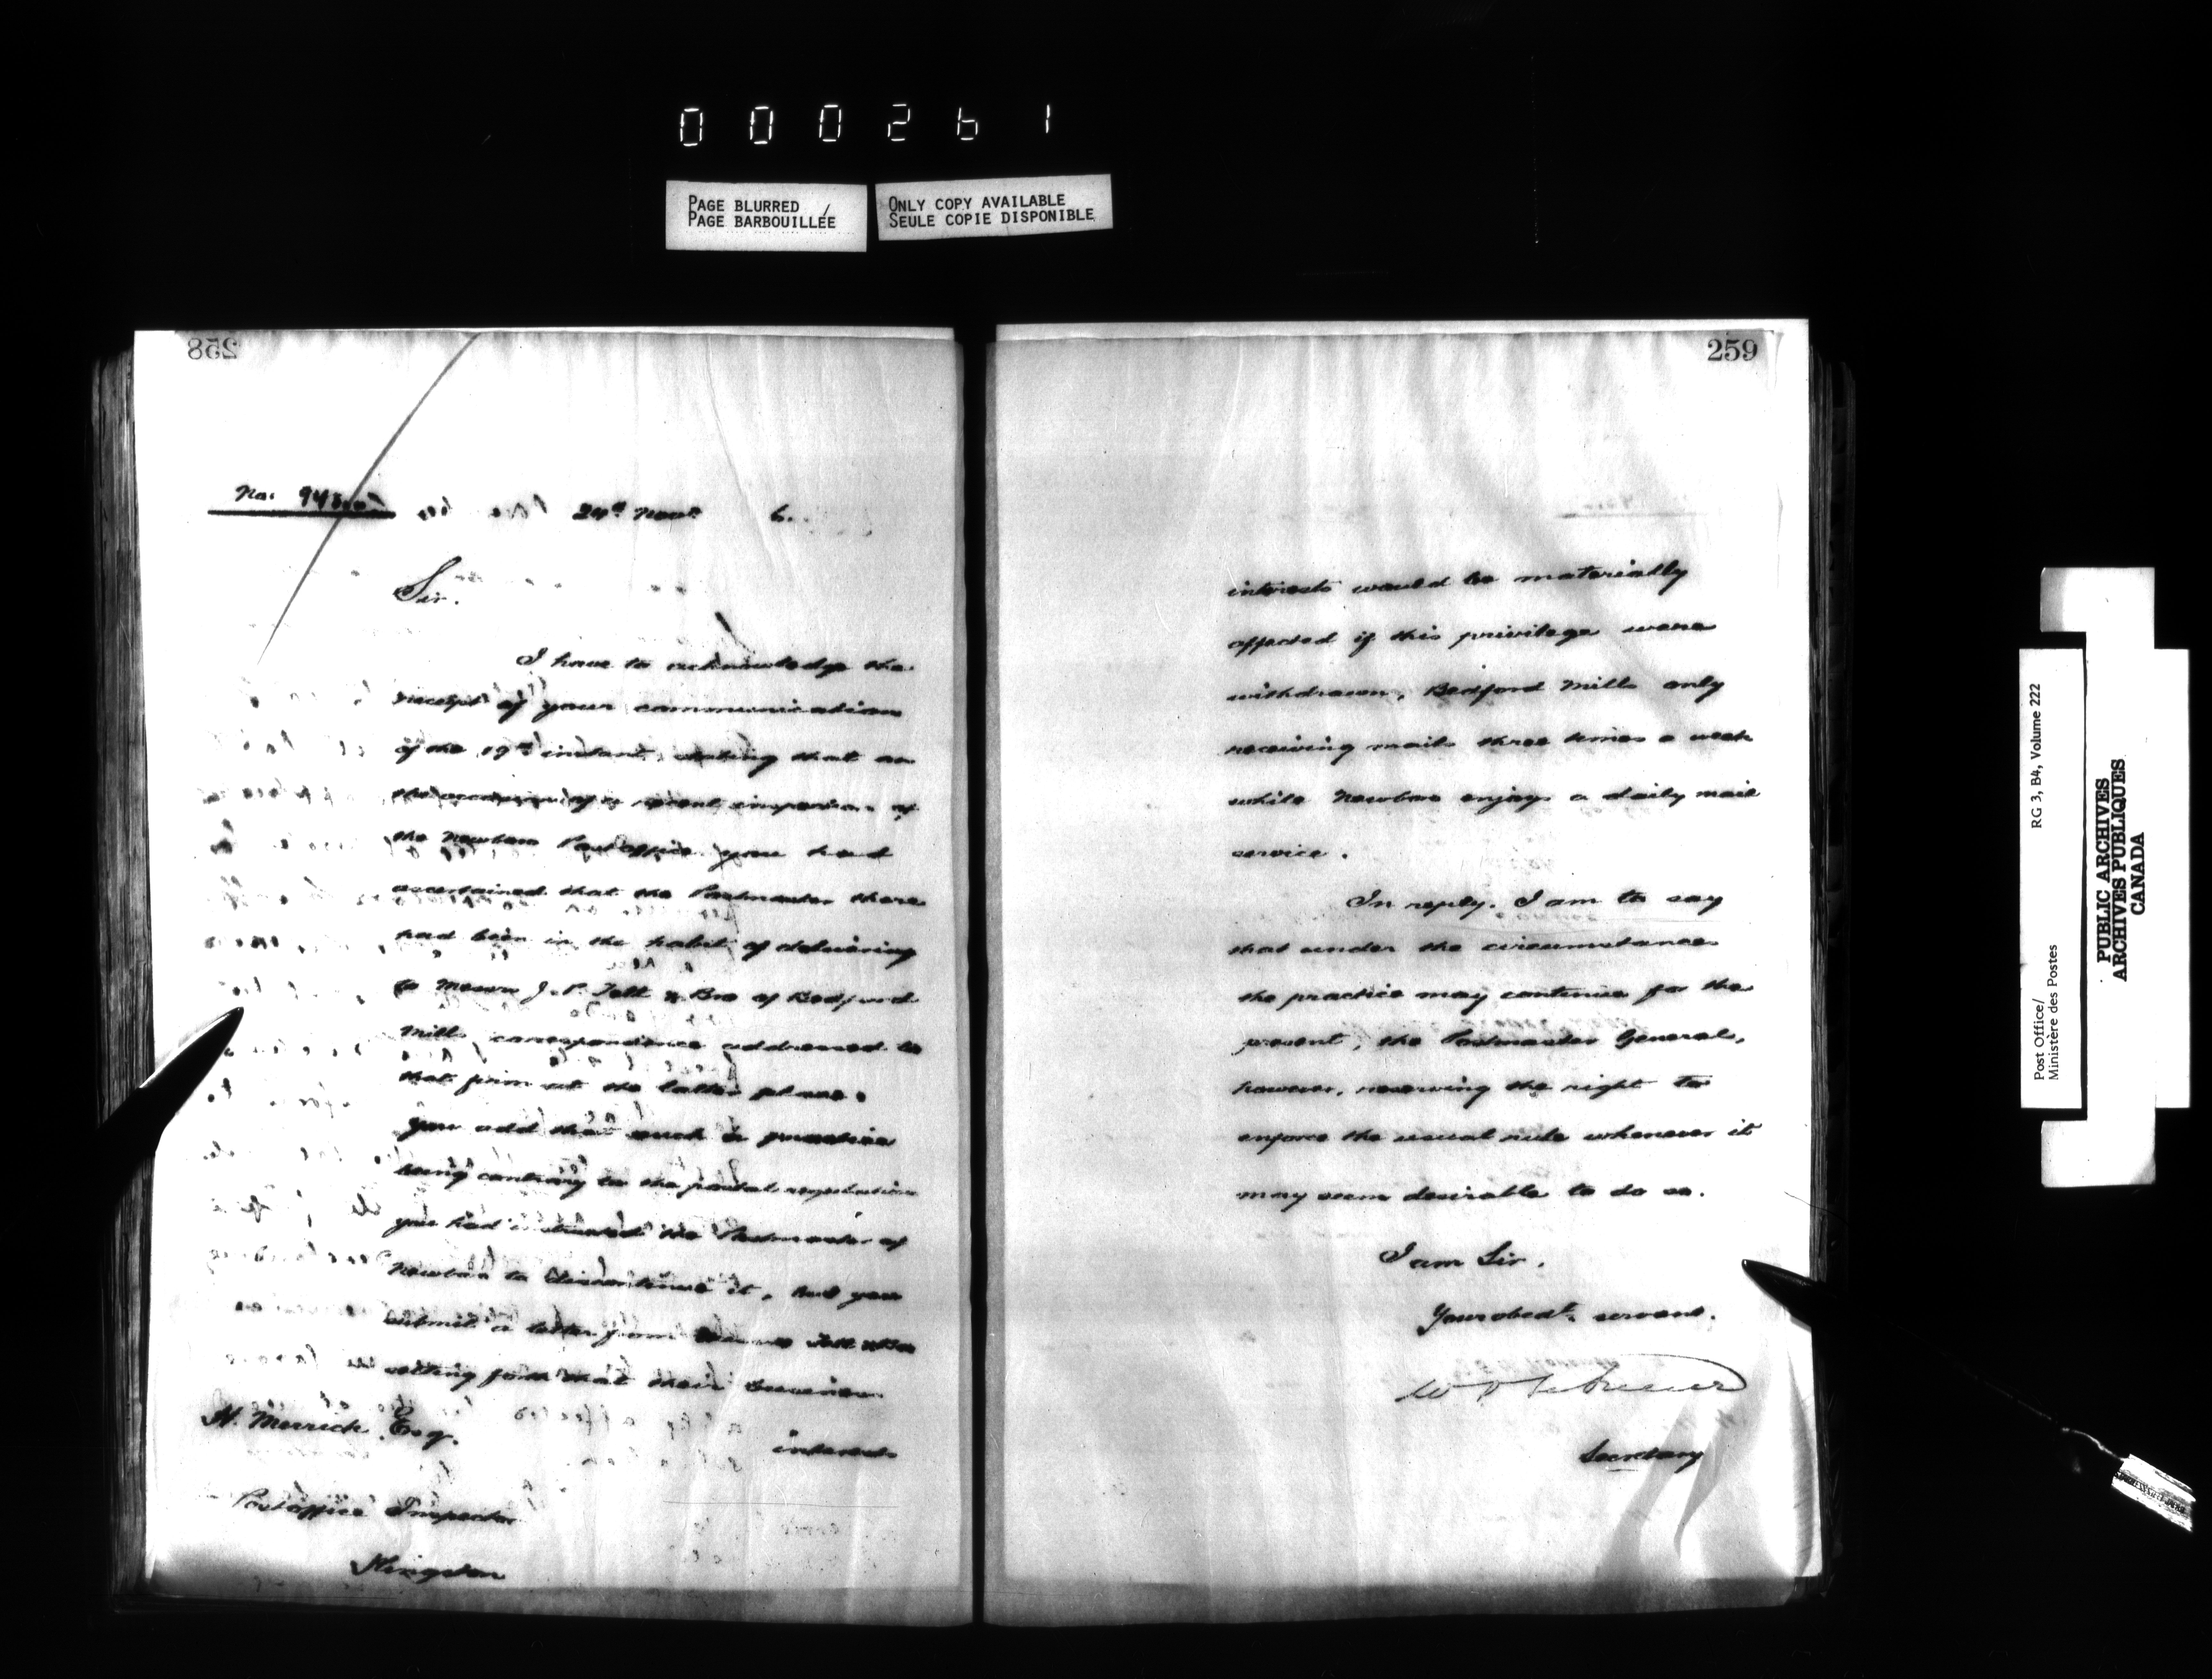 000261
PAGE BLURRED
PAGE BARBOUILLÉE
ONLY COPY AVAILABLE
SEULE COPIE DISPONIBLE
258
No.
24th Novr 6.
Sir.
I have to acknowledge the
receipt of your communication
of the 19th instant, stating that on
the occasion of a recent inspection of
the Newboro Postoffice you had
ascertained that the Postmaster there
had been in the habit of delivering
to Messrs J. P. Tett & Bro of Bedford
Mills correspondence addressed to
that firm at the latter place.
you add that such a practice
being contrary to the postal regulations
you had instructed the Postmaster of
Newboro to discontinue it, but you
submit a letter from Messrs Tett & Bro
setting forth that their business
interests
H. Merrick Esq.
Postoffice Inspector
Kingston
259
interests would be materially
affected if this privilege were
withdrawn, Bedford Mills only
receiving mails three times a week
while Newboro enjoys a daily mail
service.
In reply. I am to say
that under the circumstances
the practice may continue for the
present, the Postmaster General,
however, reserving the right to
enforce the usual rule whenever it
may seem desirable to do so.
I am Sir,
Your obedt. servant.
Secretary
Post Office/
Ministère des Postes
RG 3, B4, Volume 222
PUBLIC ARCHIVES
ARCHIVES PUBLIQUES
CANADA